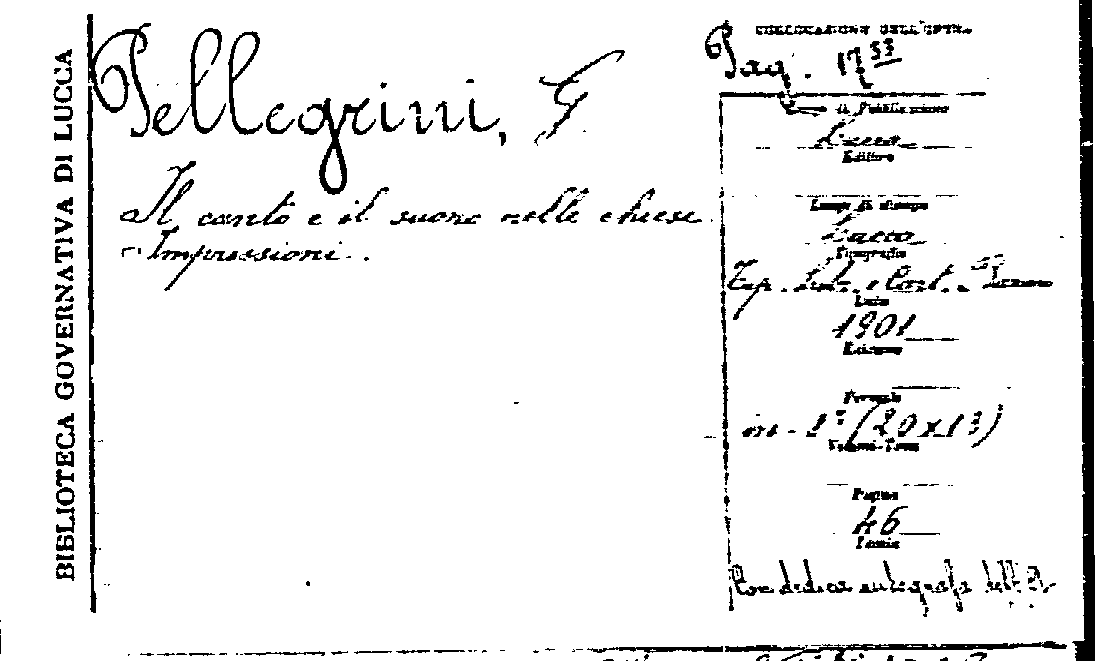 BIBLIOTECA GOVERNATIVA DI LUCCA
Pellegrini, G
Il canto e il suono nelle chiese
Impressioni.
COLLOCAZIONE DELL'OPERA
Pag. 17 53
di Pubblicazione
Lucca
Editore
Luogo di stampa
Lucca
Tipografia
Tip. e Cart.
Data
1901
Edizione
Formato
in - (20x13)
Volumi-Tomi
Pagine
46
Con dedica autografa dell' A